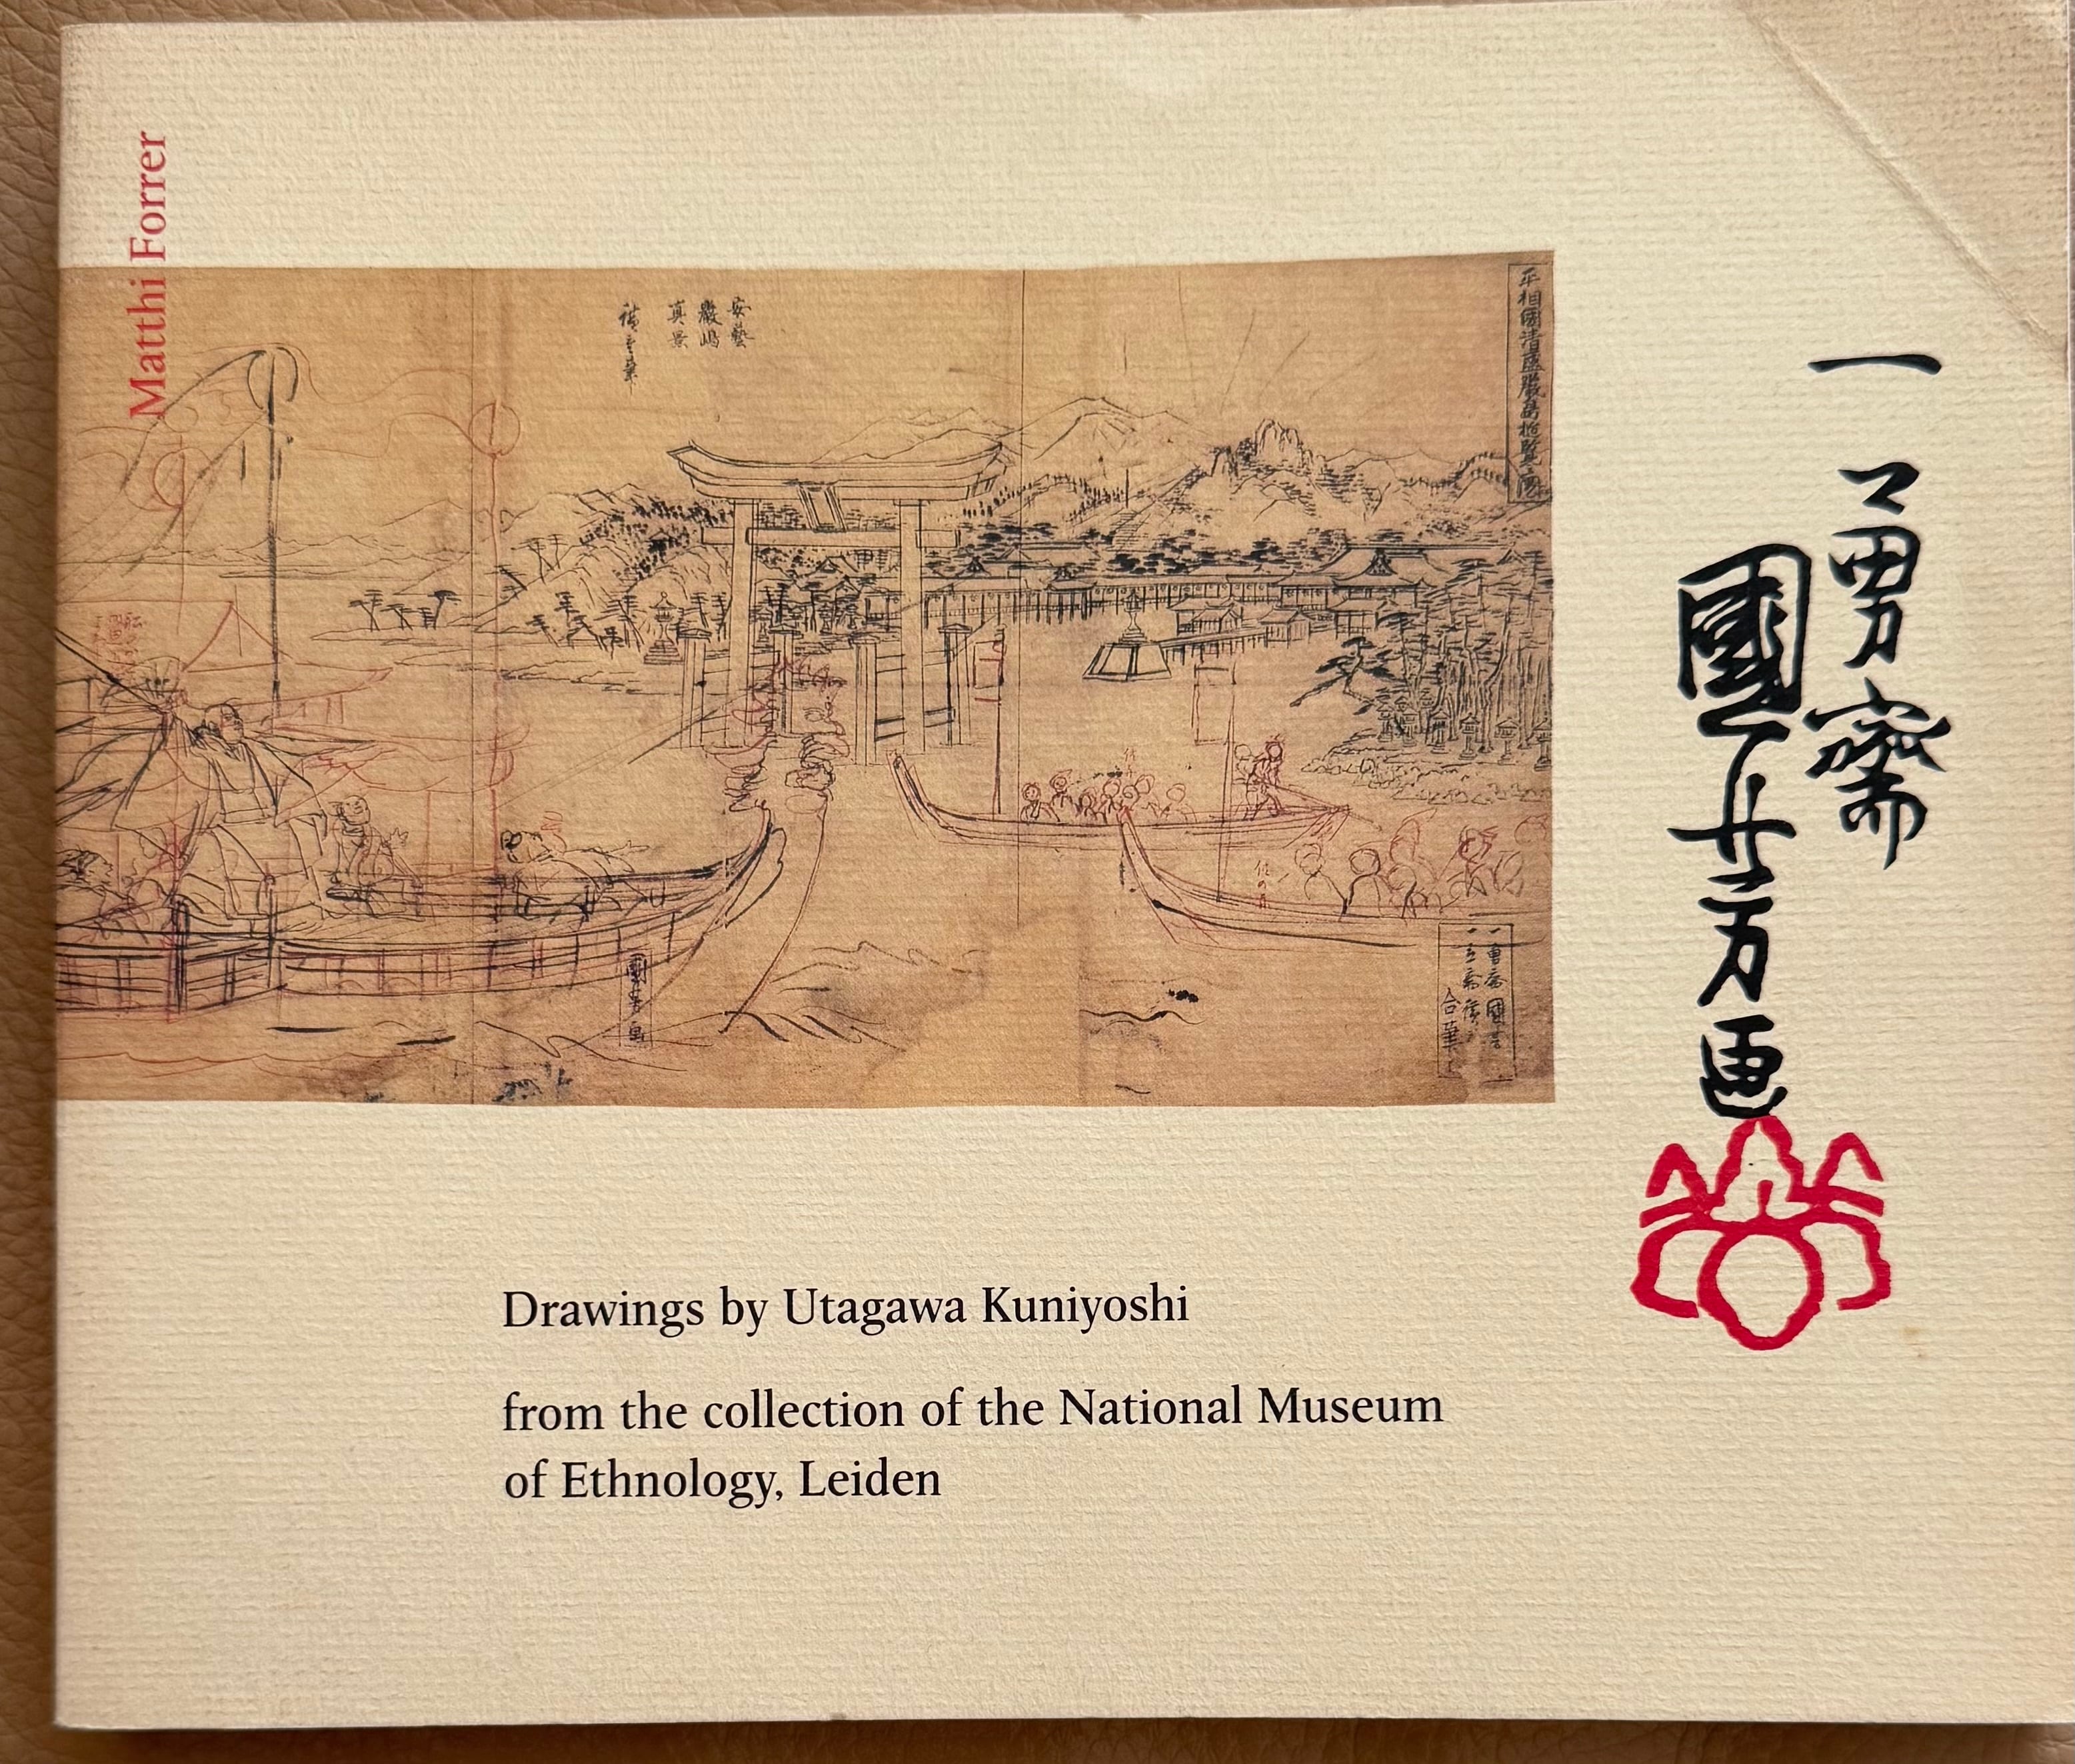 Matthi Forrer
安藝
嚴嶋
真景
一勇齋
國芳画
國芳画
一勇齋國芳
合筆
Drawings by Utagawa Kuniyoshi
from the collection of the National Museum
of Ethnology, Leiden